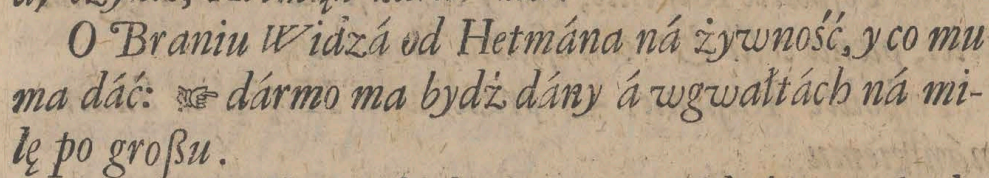 O Braniu Widzá od Hetmána ná żywność, y co mu
ma dáć: ☞ dármo ma bydź dány á wgwałtách ná mi-
lę po großu.